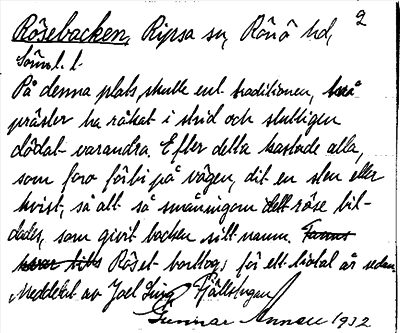 2
Rösebacken, Ripsa sn, Rönö hd,
Söml. l.
På denna plats skulle enl. traditionen, två
präster ha råkat i strid och slutligen
dödat varandra. Efter detta kastade alla,
som foro förbi på vägen, dit en sten eller
kvist, så att så småningom ett röse bil-
dades, som givit backen sitt namn. Fanns
tills Röset borttogs för ett tiotal år sedan.
Meddelat av Joel
Gunnar 1932